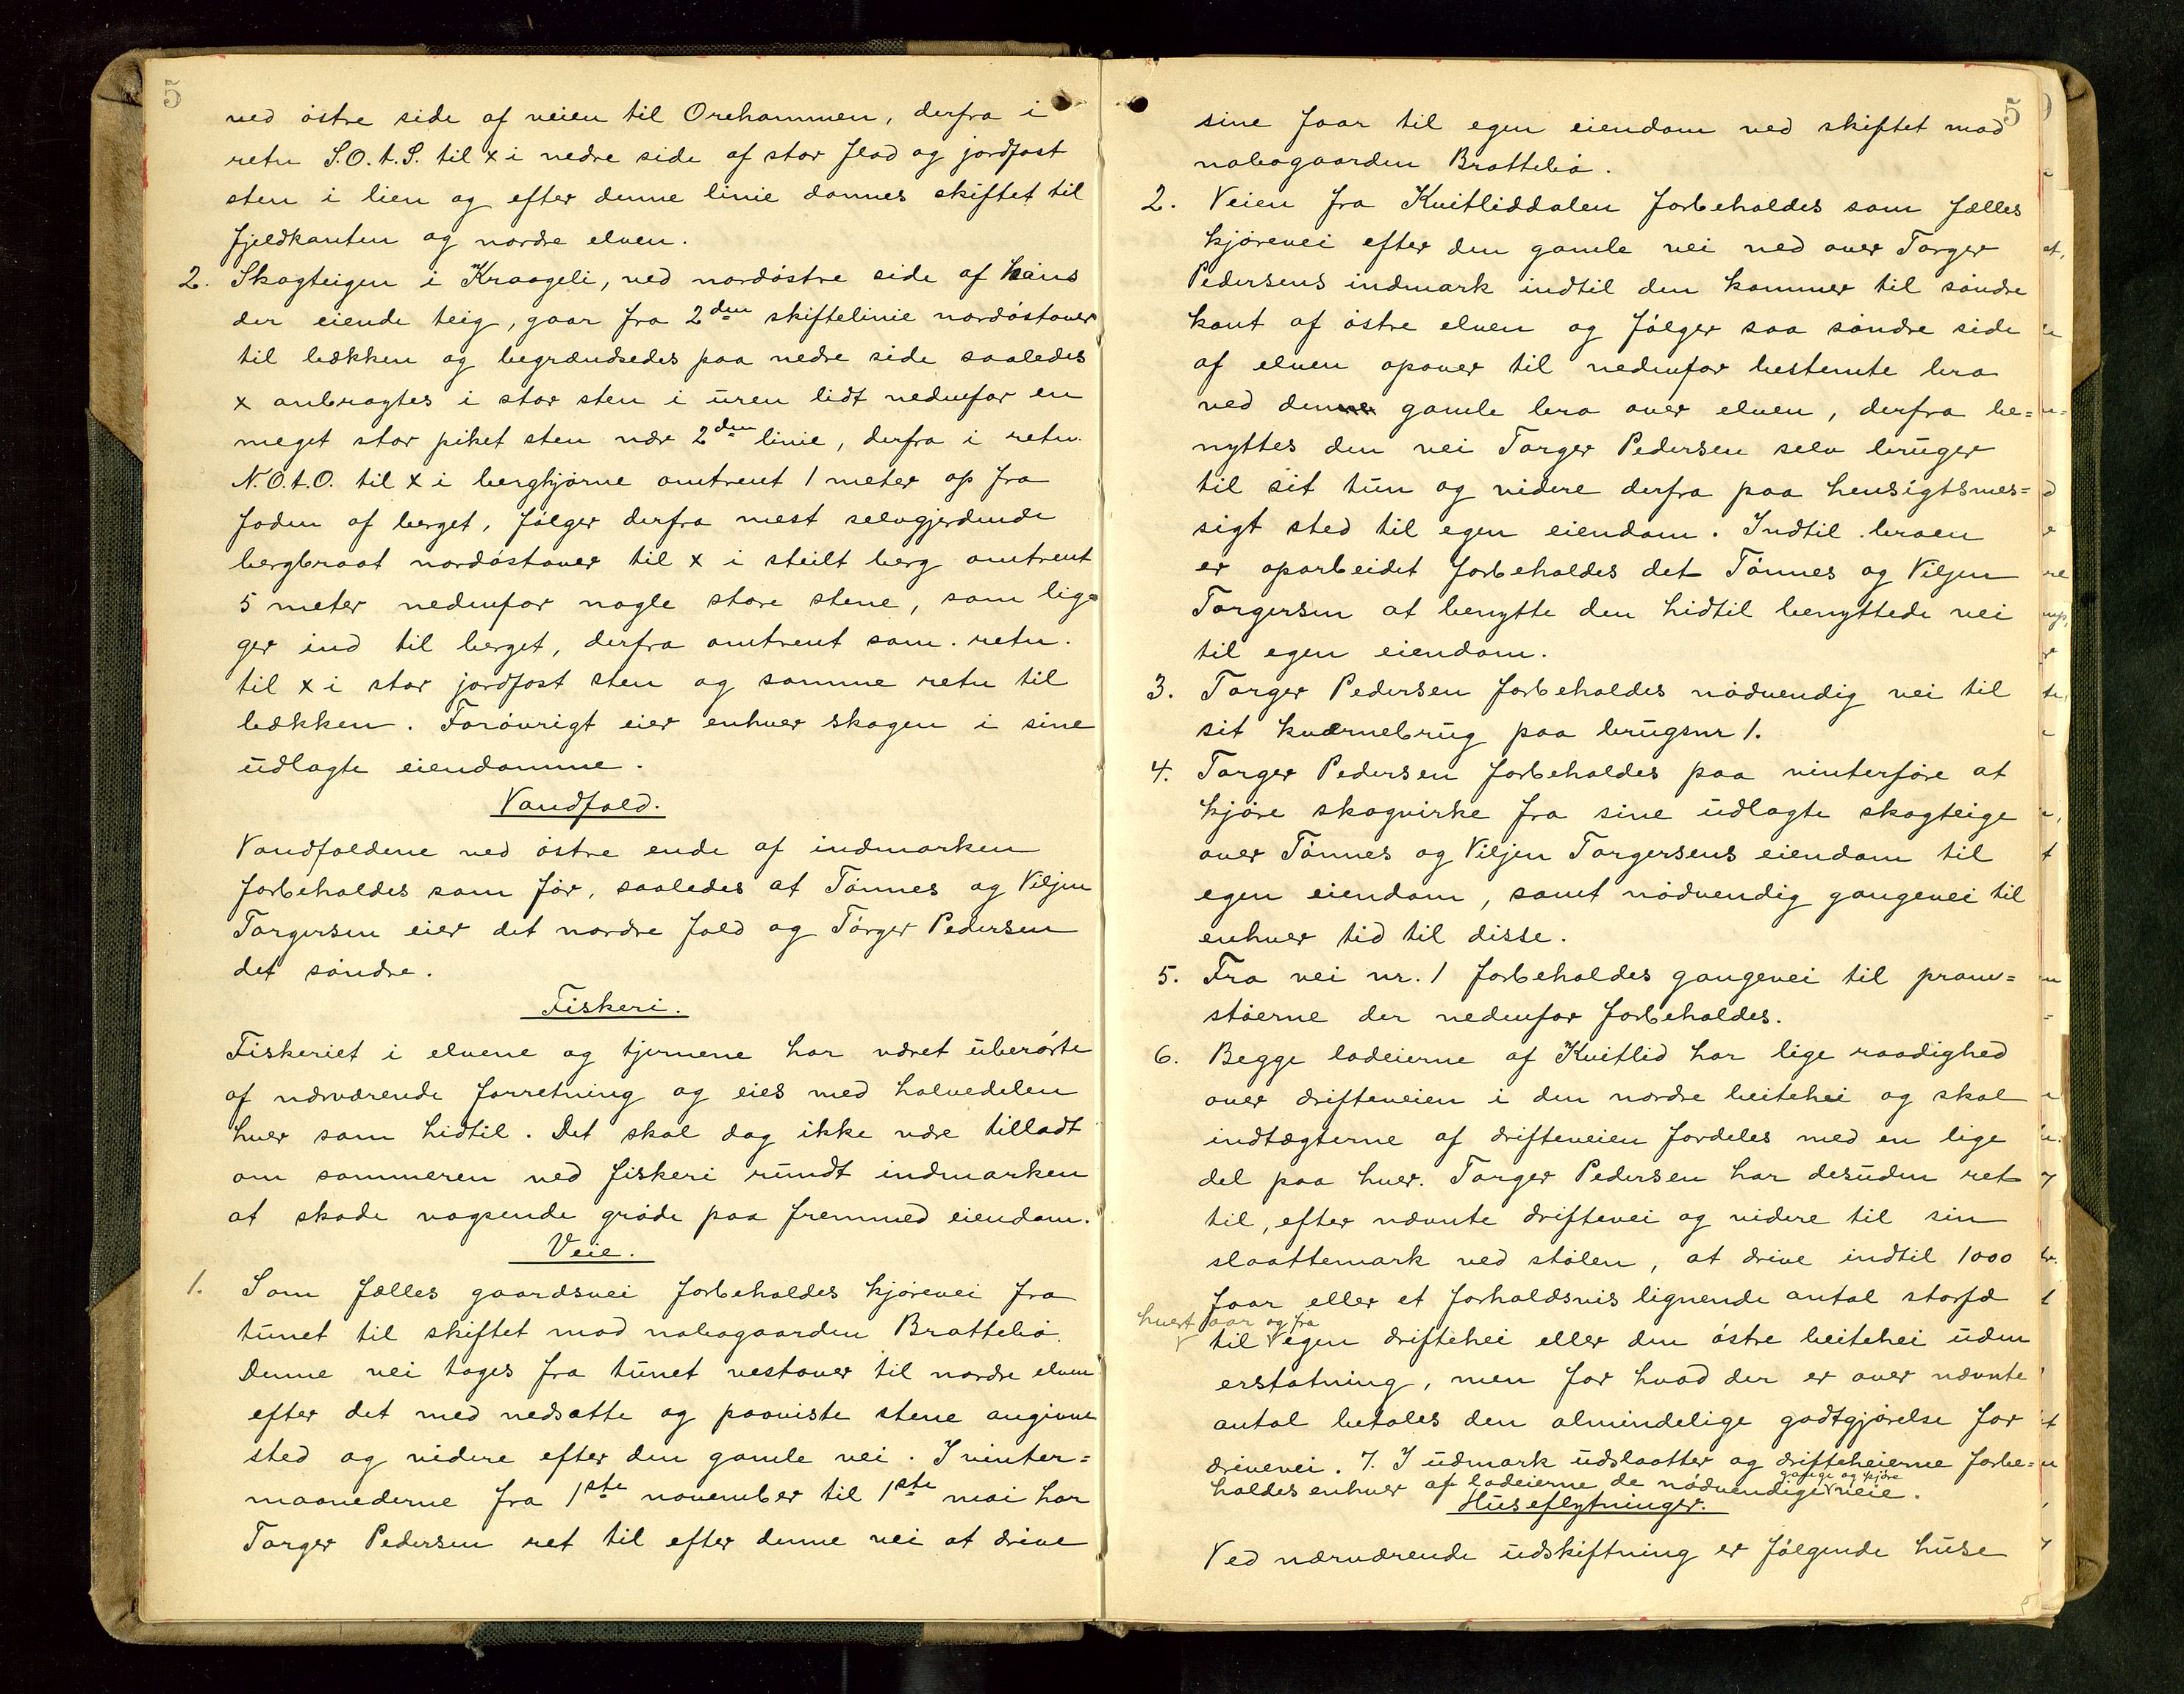 5
ved østre side af veien til Orehammen, derfra i
retn S.O.t.S. til x i nedre side af stor flad og jordfast
sten i lien og efter denne linie dannes skiftet til
fjeldkanten og nordre elven.
2. Skogteigen i Kraageli, ved nordøstre side af hans
der eiende teig, gaar fra 2den skiftelinie nordøstover
til bækken og begrændsedes paa nedre side saaledes
x anbragtes i stor sten i uren lidt nedenfor en
meget stor piket sten nær 2den linie, derfra i retn.
N.O.t.O. til x i berghjørne omtrent 1 meter op fra
foden af berget, følger derfra mest selvgjerdende
bergbraat nordøstover til x i steilt berg omtrent
5 meter nedenfor nogle store stene, som lig=
ger ind til berget, derfra omtrent sam. retn.
til x i stor jordfast sten og samme retn til
bækken. Forøvrigt eier enhver skogen i sine
udlagte eiendomme.
Vandfald.
Vandfaldene ved østre ende af indmarken
forbeholdes som før, saaledes at Tønnes og Viljen
Torgersen eier det nordre fald og Tørger Pedersen
det søndre.
Fiskeri.
Fiskeriet i elvene og tjernene har været uberørte
af nærværende forretning og eies med halvedelen
hver som hidtil. Det skal dog ikke være tilladt
om sommeren ved fiskeri rundt indmarken
at skade vogsende grøde paa fremmed eiendom.
Veie.
1. Som fælles gaardsvei forbeholdes kjørevei fra
tunet til skiftet mod nabogaarden Brattebø.
Denne vei tages fra tunet vestover til nordre elven
efter det med nedsatte og paaviste stene angivne
sted og videre efter den gamle vei. I vinter=
maanederne fra 1ste november til 1ste mai har
Torger Pedersen ret til efter denne vei at drive
5
sine faar til egen eiendom ved skiftet mod
nabogaarden Brattebø.
2. Veien fra Kvitliddalen forbeholdes som fælles
kjørevei efter den gamle vei ned over Torger
Pedersens indmark indtil den kommer til søndre
kant af østre elven og følger saa søndre side
af elven opover til nedenfor bestemte bro
ved den gamle bro over elven, derfra be=
nyttes den vei Torger Pedersen selv bruger
til sit tun og videre derfra paa hensigtsmes=
sigt sted til egen eiendom. Indtil broen
er oparbeidet forbeholdes det Tønnes og Viljen
Torgersen at benytte den hidtil benyttede vei
til egen eiendom.
3. Torger Pedersen forbeholdes nødvendig vei til
sit kværnebrug paa brugsnr 1.
4. Torger Pedersen forbeholdes paa vinterføre at
kjøre skogvirke fra sine udlagte skogteige
over Tønnes og Viljen Torgersens eiendom til
egen eiendom, samt nødvendig gangevei til
enhver tid til disse.
5. Fra vei nr. 1 forbeholdes gangevei til pram=
støerne der nedenfor forbeholdes.
6. Begge lodeierne af Kvitlid har lige raadighed
over drifteveien i den nordre beitehei og skal
indtægterne af drifteveien fordeles med en lige
del paa hver. Torger Pedersen har desuden ret
til, efter nævnte driftevei og videre til sin
slaattemark ved stølen, at drive indtil 1000
faar eller et forholdsvis lignende antal storfæ
hvert aar og fra
til egen driftehei eller den østre beitehei uden
erstatning, men for hvad der er over nævnte
antal betales den almindelige godtgjørelse for
drivevei. 7. I udmark udslaatter og drifteheierne forbe=
gange og kjøre
holdes enhver af lodeierne de nødvendige veie.
Huseflytninger.
Ved nærværende udskiftning er følgende huse